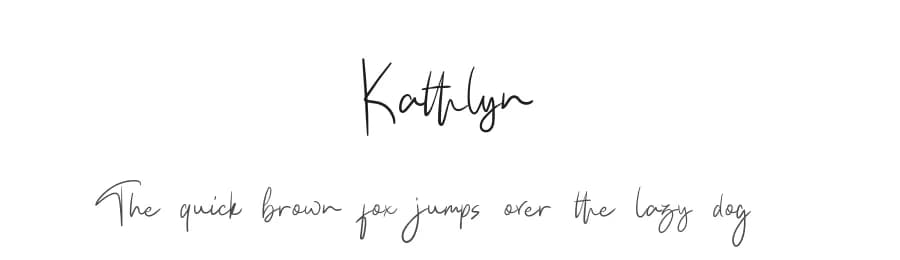 Kathlyn
The quick brown fox jumps over the lazy dog